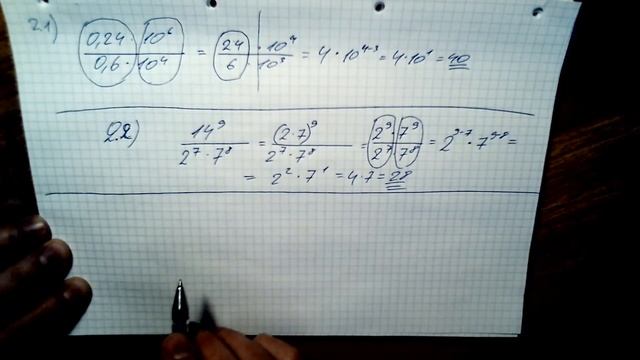 2.1) (0,24 · 10⁶)/(0,6 · 10⁴) = (24 · 10⁴)/(6 · 10³) = 4 · 10⁴⁻³ = 4 · 10¹ = 40
2.2) 14⁹/(2⁷ · 7⁸) = (2 · 7)⁹/(2⁷ · 7⁸) = (2⁹ · 7⁹)/(2⁷ · 7⁸) = 2⁹⁻⁷ · 7⁹⁻⁸ =
= 2² · 7¹ = 4 · 7 = 28